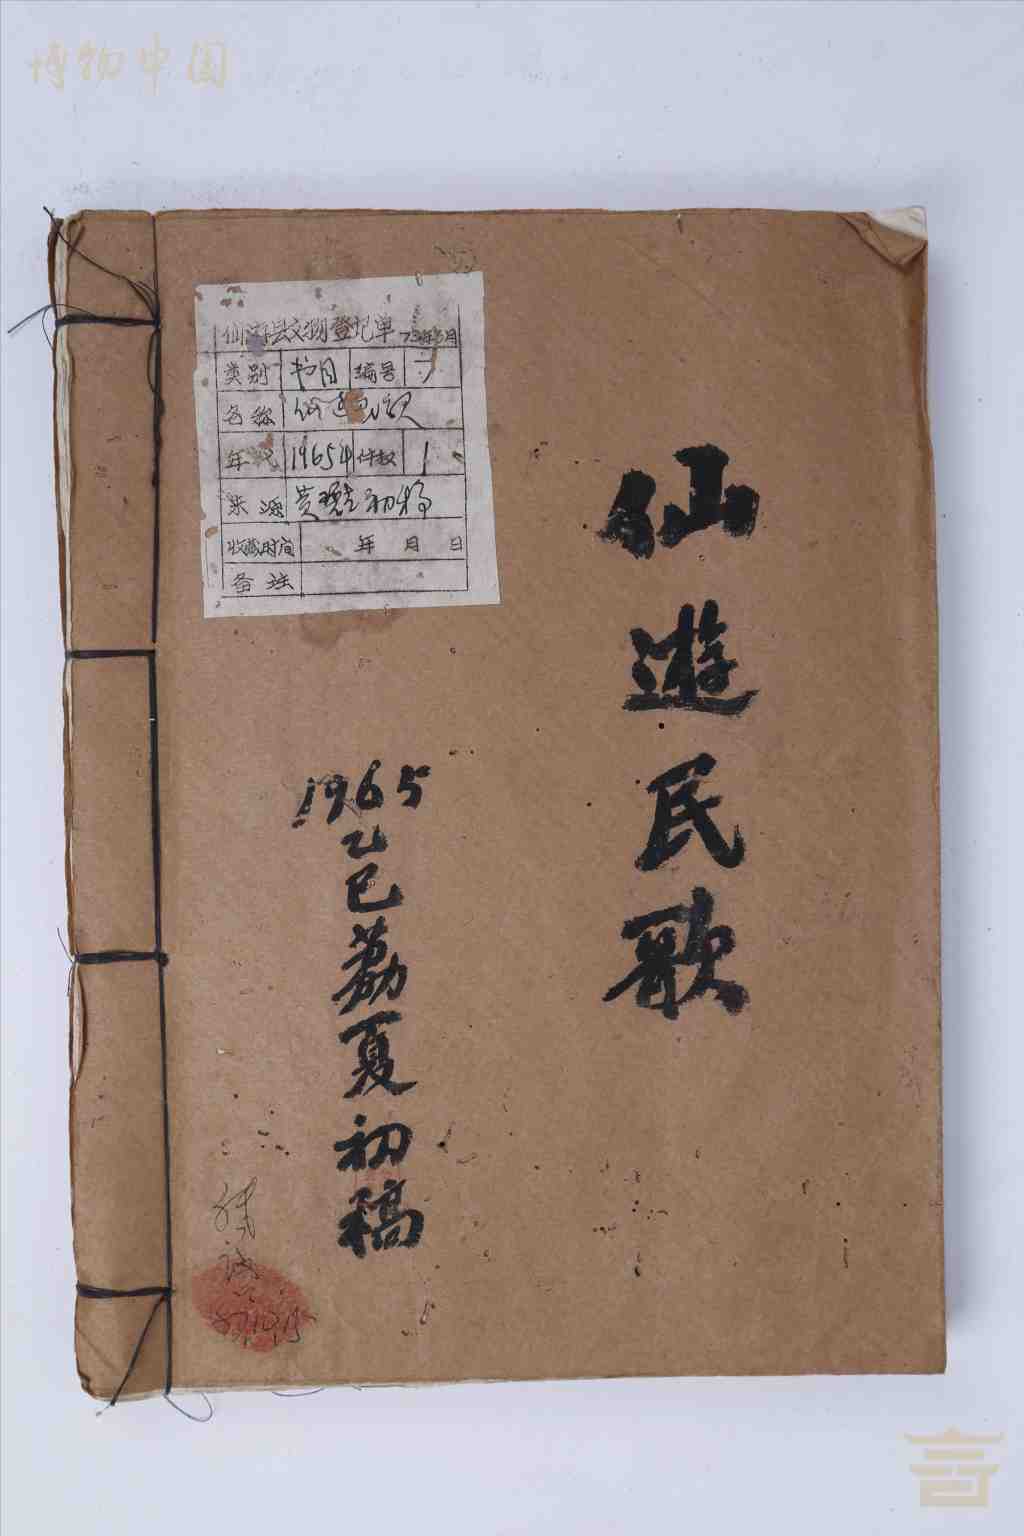 博物中国
仙游县文物登记单 73年5月
类别 书目 编号
名称 仙遊民歌
年代 1965年 件数 1
来源 黄 初稿
收藏时间 年 月 日
备注
仙遊民歌
1965
乙巳荔夏初稿